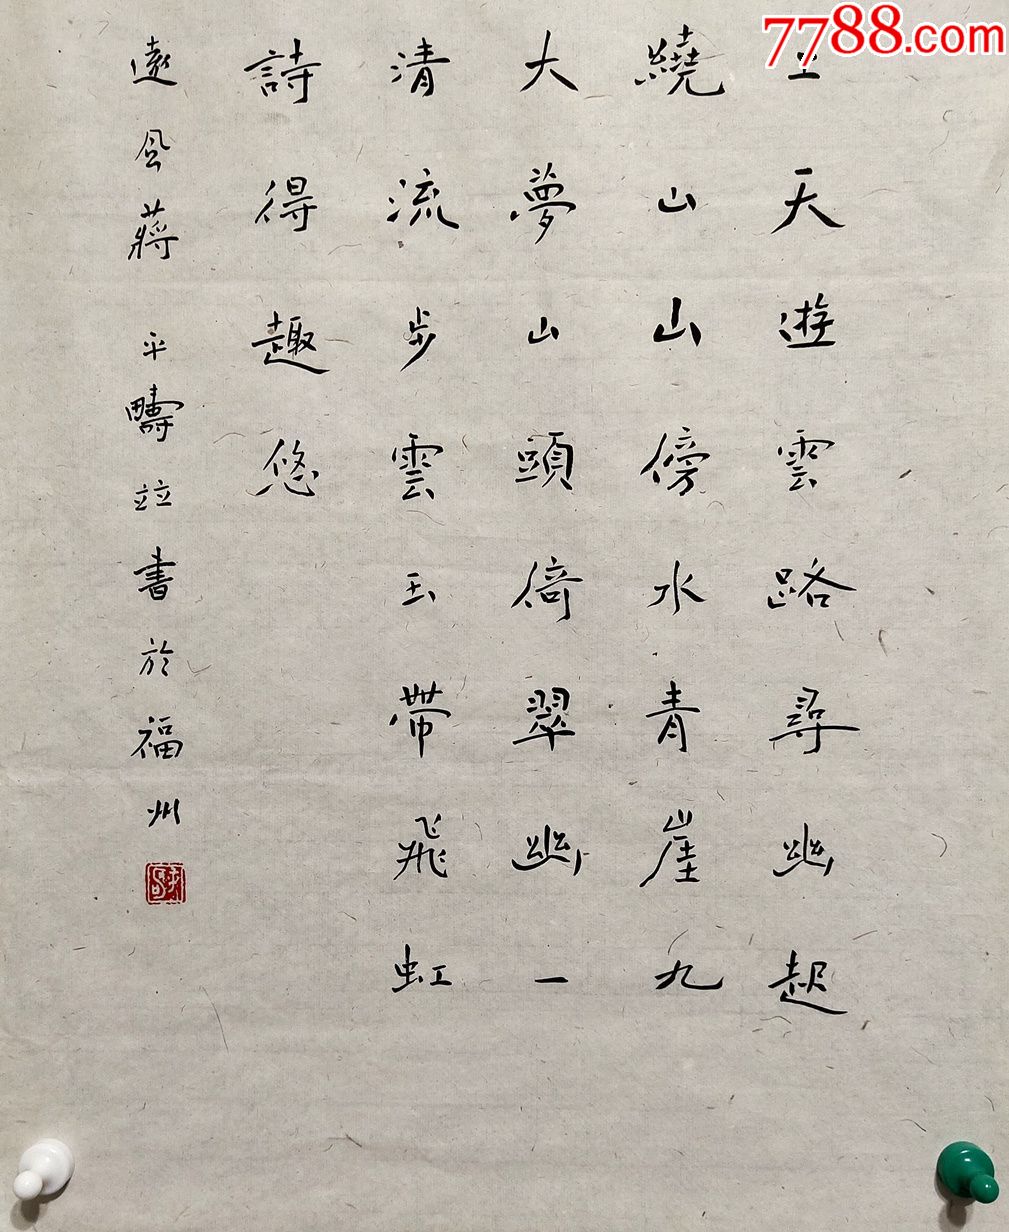 天遊雲路尋幽趣
繞山山傍水青崖九
大夢山頭倚翠幽一
清流步雲玉帶飛虹
詩得趣悠
遠風蔣平疇並書於福州
7788.com